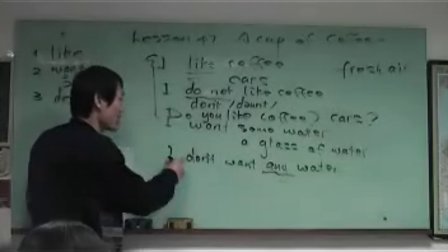 Lesson 47 A cup of coffee
1 like
2 want
3
I like coffee
cars
fresh air
I do not like coffee
don't /dəunt/
Do you like coffee? cars?
want some water
a glass of water
I don't want any water